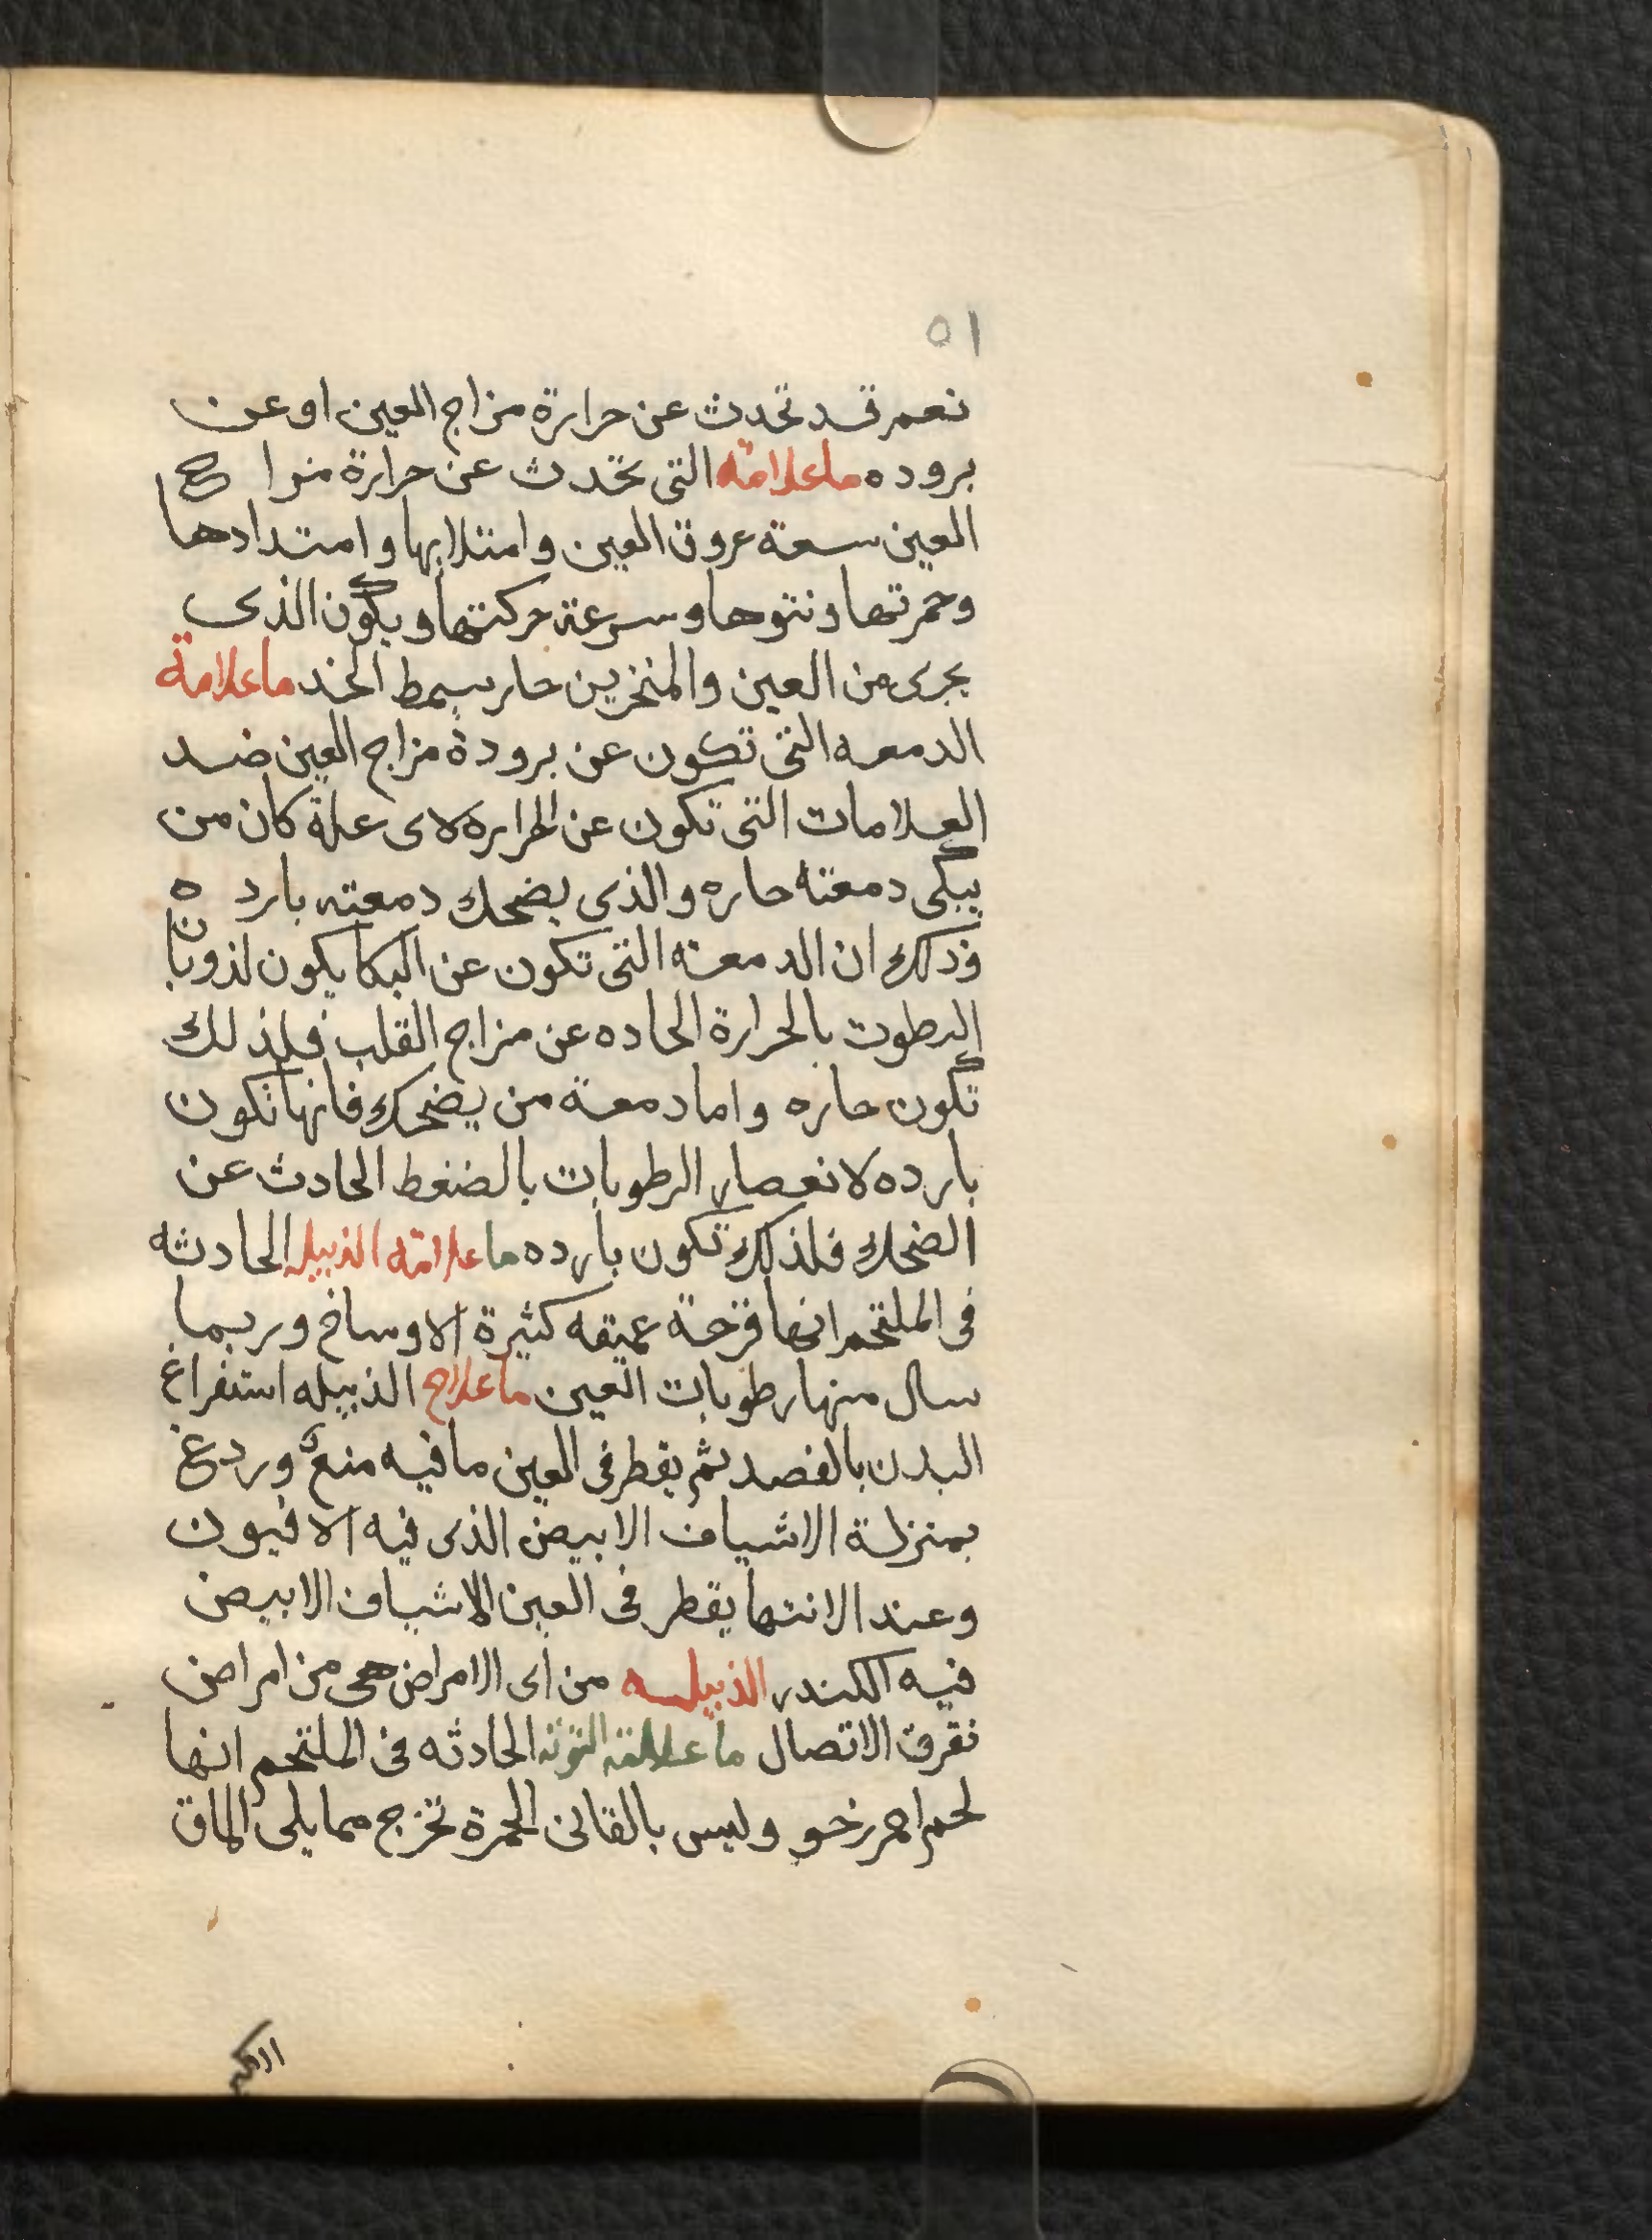 ٥١
نعم قد تحدث عن حرارة مزاج العين او عن
بروده ما علامة التى تحدث عن حرارة مزاج
العين سعة عروق العين وامتلايها وامتدادها
وحمرتها ونتوها وسرعة حركتها ويكون الذى
يجرى من العين والمنخرين حار يسمط الخد ما علامة
الدمعه التى تكون عن برودة مزاج العين ضد
العلامات التى تكون عن الحراره لاى علة كان من
يبكى دمعته حاره والذى يضحك دمعته بارده
وذلك ان الدمعة التى تكون عن البكا يكون لذوبان
الرطوبت بالحرارة الحاده عن مزاج القلب فلذلك
تكون حاره واما دمعة من يضحك فانها تكون
بارده لانعصار الرطوبات بالضغط الحادث عن
الضحك فلذلك تكون بارده ما علامة الذبيله الحادثه
فى الملتحم انها قرحة عميقه كثيرة الاوساخ وربما
سال منها رطوبات العين ما علاج الذبيله استفراغ
البدن بالفصد ثم يقطر فى العين ما فيه منع وردغ
بمنزلة الاشياف الابيض الذى فيه الافيون
وعند الانتها يقطر فى العين الاشياف الابيض
فيه الكندر الذبيله من اى الامراض هى من امراض
تفرق الاتصال ما علامة التوته الحادثه فى الملتحم انها
لحم احمر رخو وليس بالقانى الحمرة تخرج مما يلى الماق